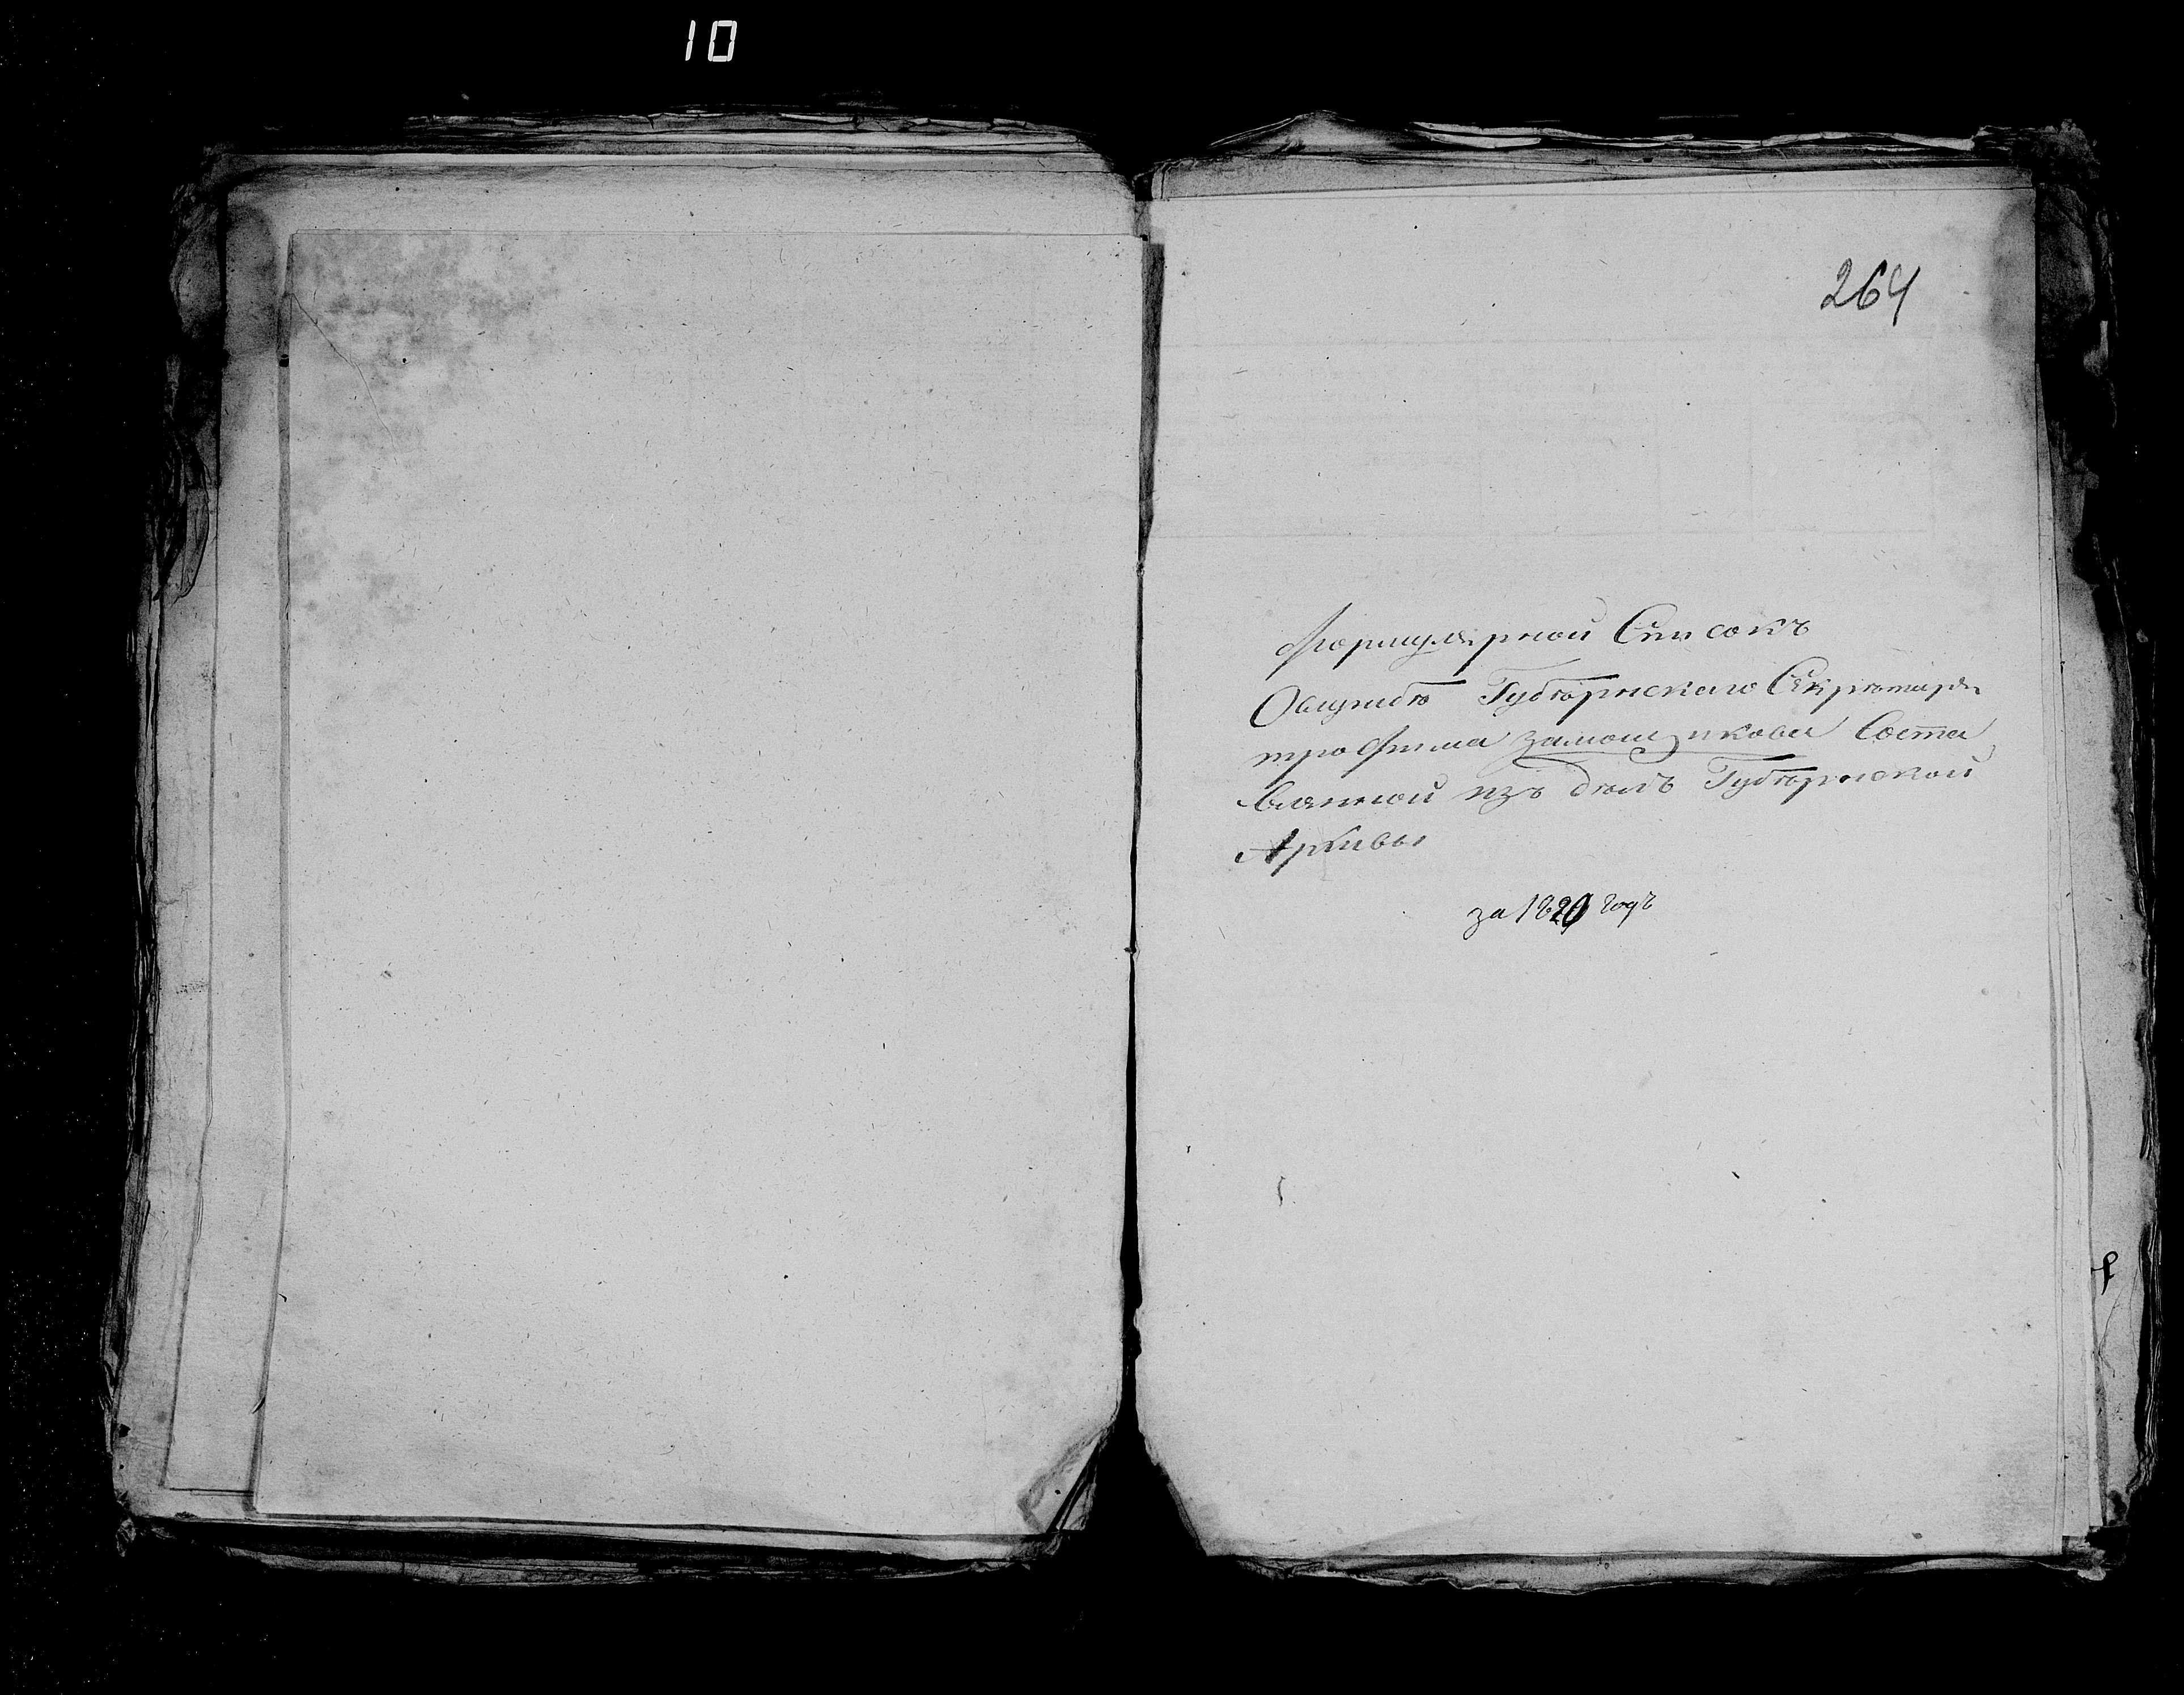 10
264
Формулярной Список
Ослужбѣ Губѣрнскаго Секрѣтаря
трофима замощикова Соста
вленной изъ дѣлъ Губѣрнской
Архивы
за 1820 годъ